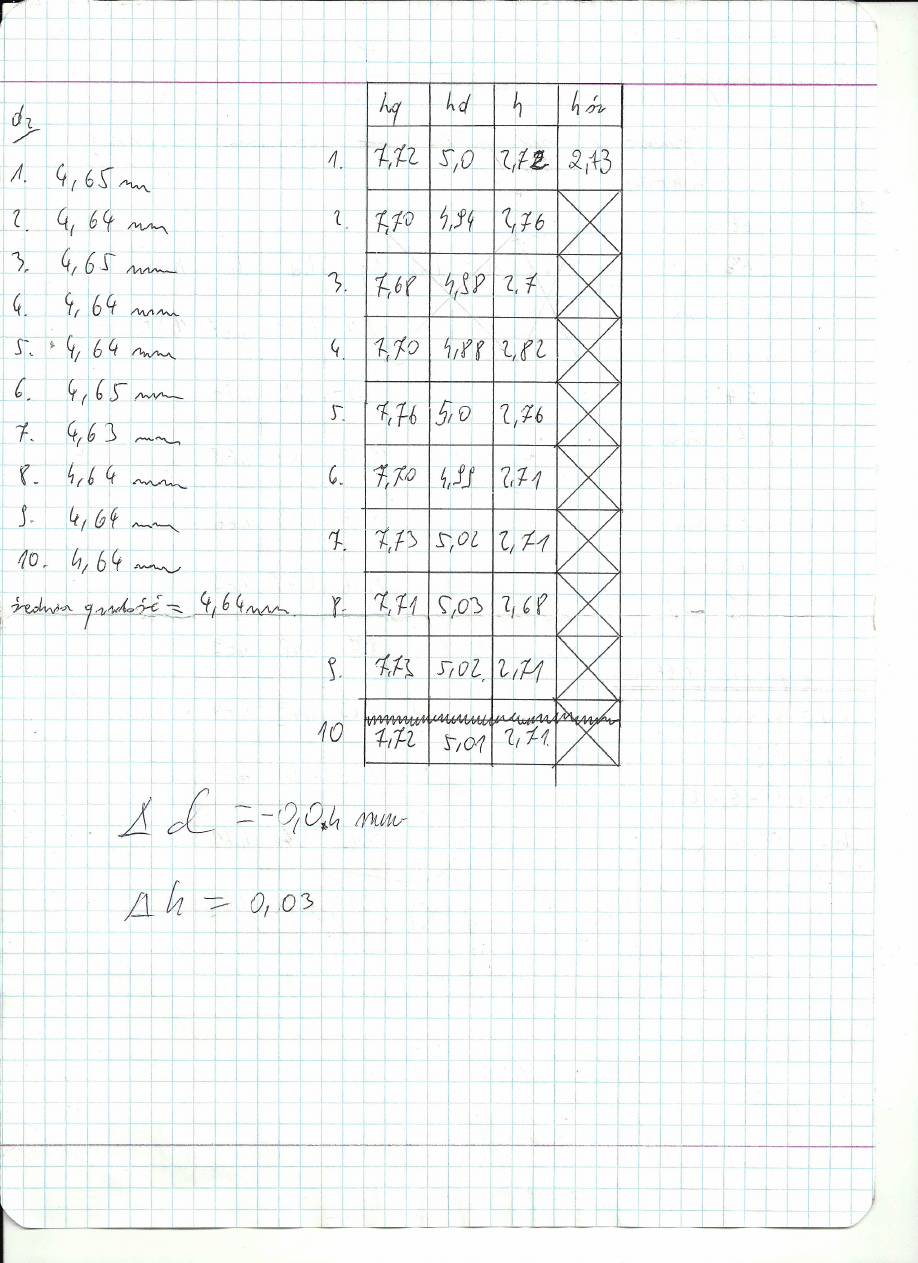 d₂
1. 4,65 mm
2. 4,64 mm
3. 4,65 mm
4. 4,64 mm
5. 4,64 mm
6. 4,65 mm
7. 4,63 mm
8. 4,64 mm
9. 4,64 mm
10. 4,64 mm
średnia grubość = 4,64 mm
hg hd h h śr
1. 7,72 5,0 2,72 2,73
2. 7,70 4,94 2,76
3. 7,68 4,98 2,7
4. 7,70 4,88 2,82
5. 7,76 5,0 2,76
6. 7,70 4,99 2,71
7. 7,73 5,02 2,71
8. 7,71 5,03 2,68
9. 7,73 5,02 2,71
10 7,72 5,01 2,71
Δ d = -0,04 mm
Δ h = 0,03